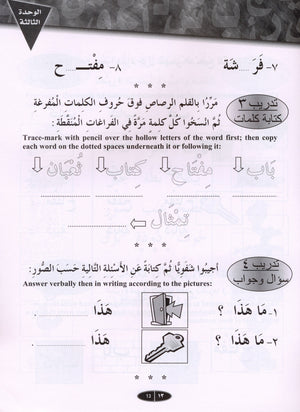 الوحدة
الثالثة
٧- فَرَ ـــ شة ٨- مِفْتـــ ح
* * *
تدريب ٣
كتابة كلمات
مَرِّرَا بالقلم الرصاص فوق حُروف الكلمات المُفرغة
ثُمَّ انْسَخُوا كُلَّ كلِمة مَرَّةً في الفَراغات المُنَقَّطَة:
Trace-mark with pencil over the hollow letters of the word first; then copy
each word on the dotted spaces underneath it or following it:
بَاب مِفْتَاح كِتَاب ثُعْبَان
تِمْثَال
* * *
تدريب ٤
سؤال وجواب
أجيبُوا شفَويًّا ثُمَّ كتابةً عَنِ الأسْئِلة التَّالِية حَسَبَ الصُّوَر:
Answer verbally then in writing according to the pictures:
١- مَا هَذَا ؟ هَذَا
٢- مَا هَذَا ؟ هَذَا
* * *
13 ١٣